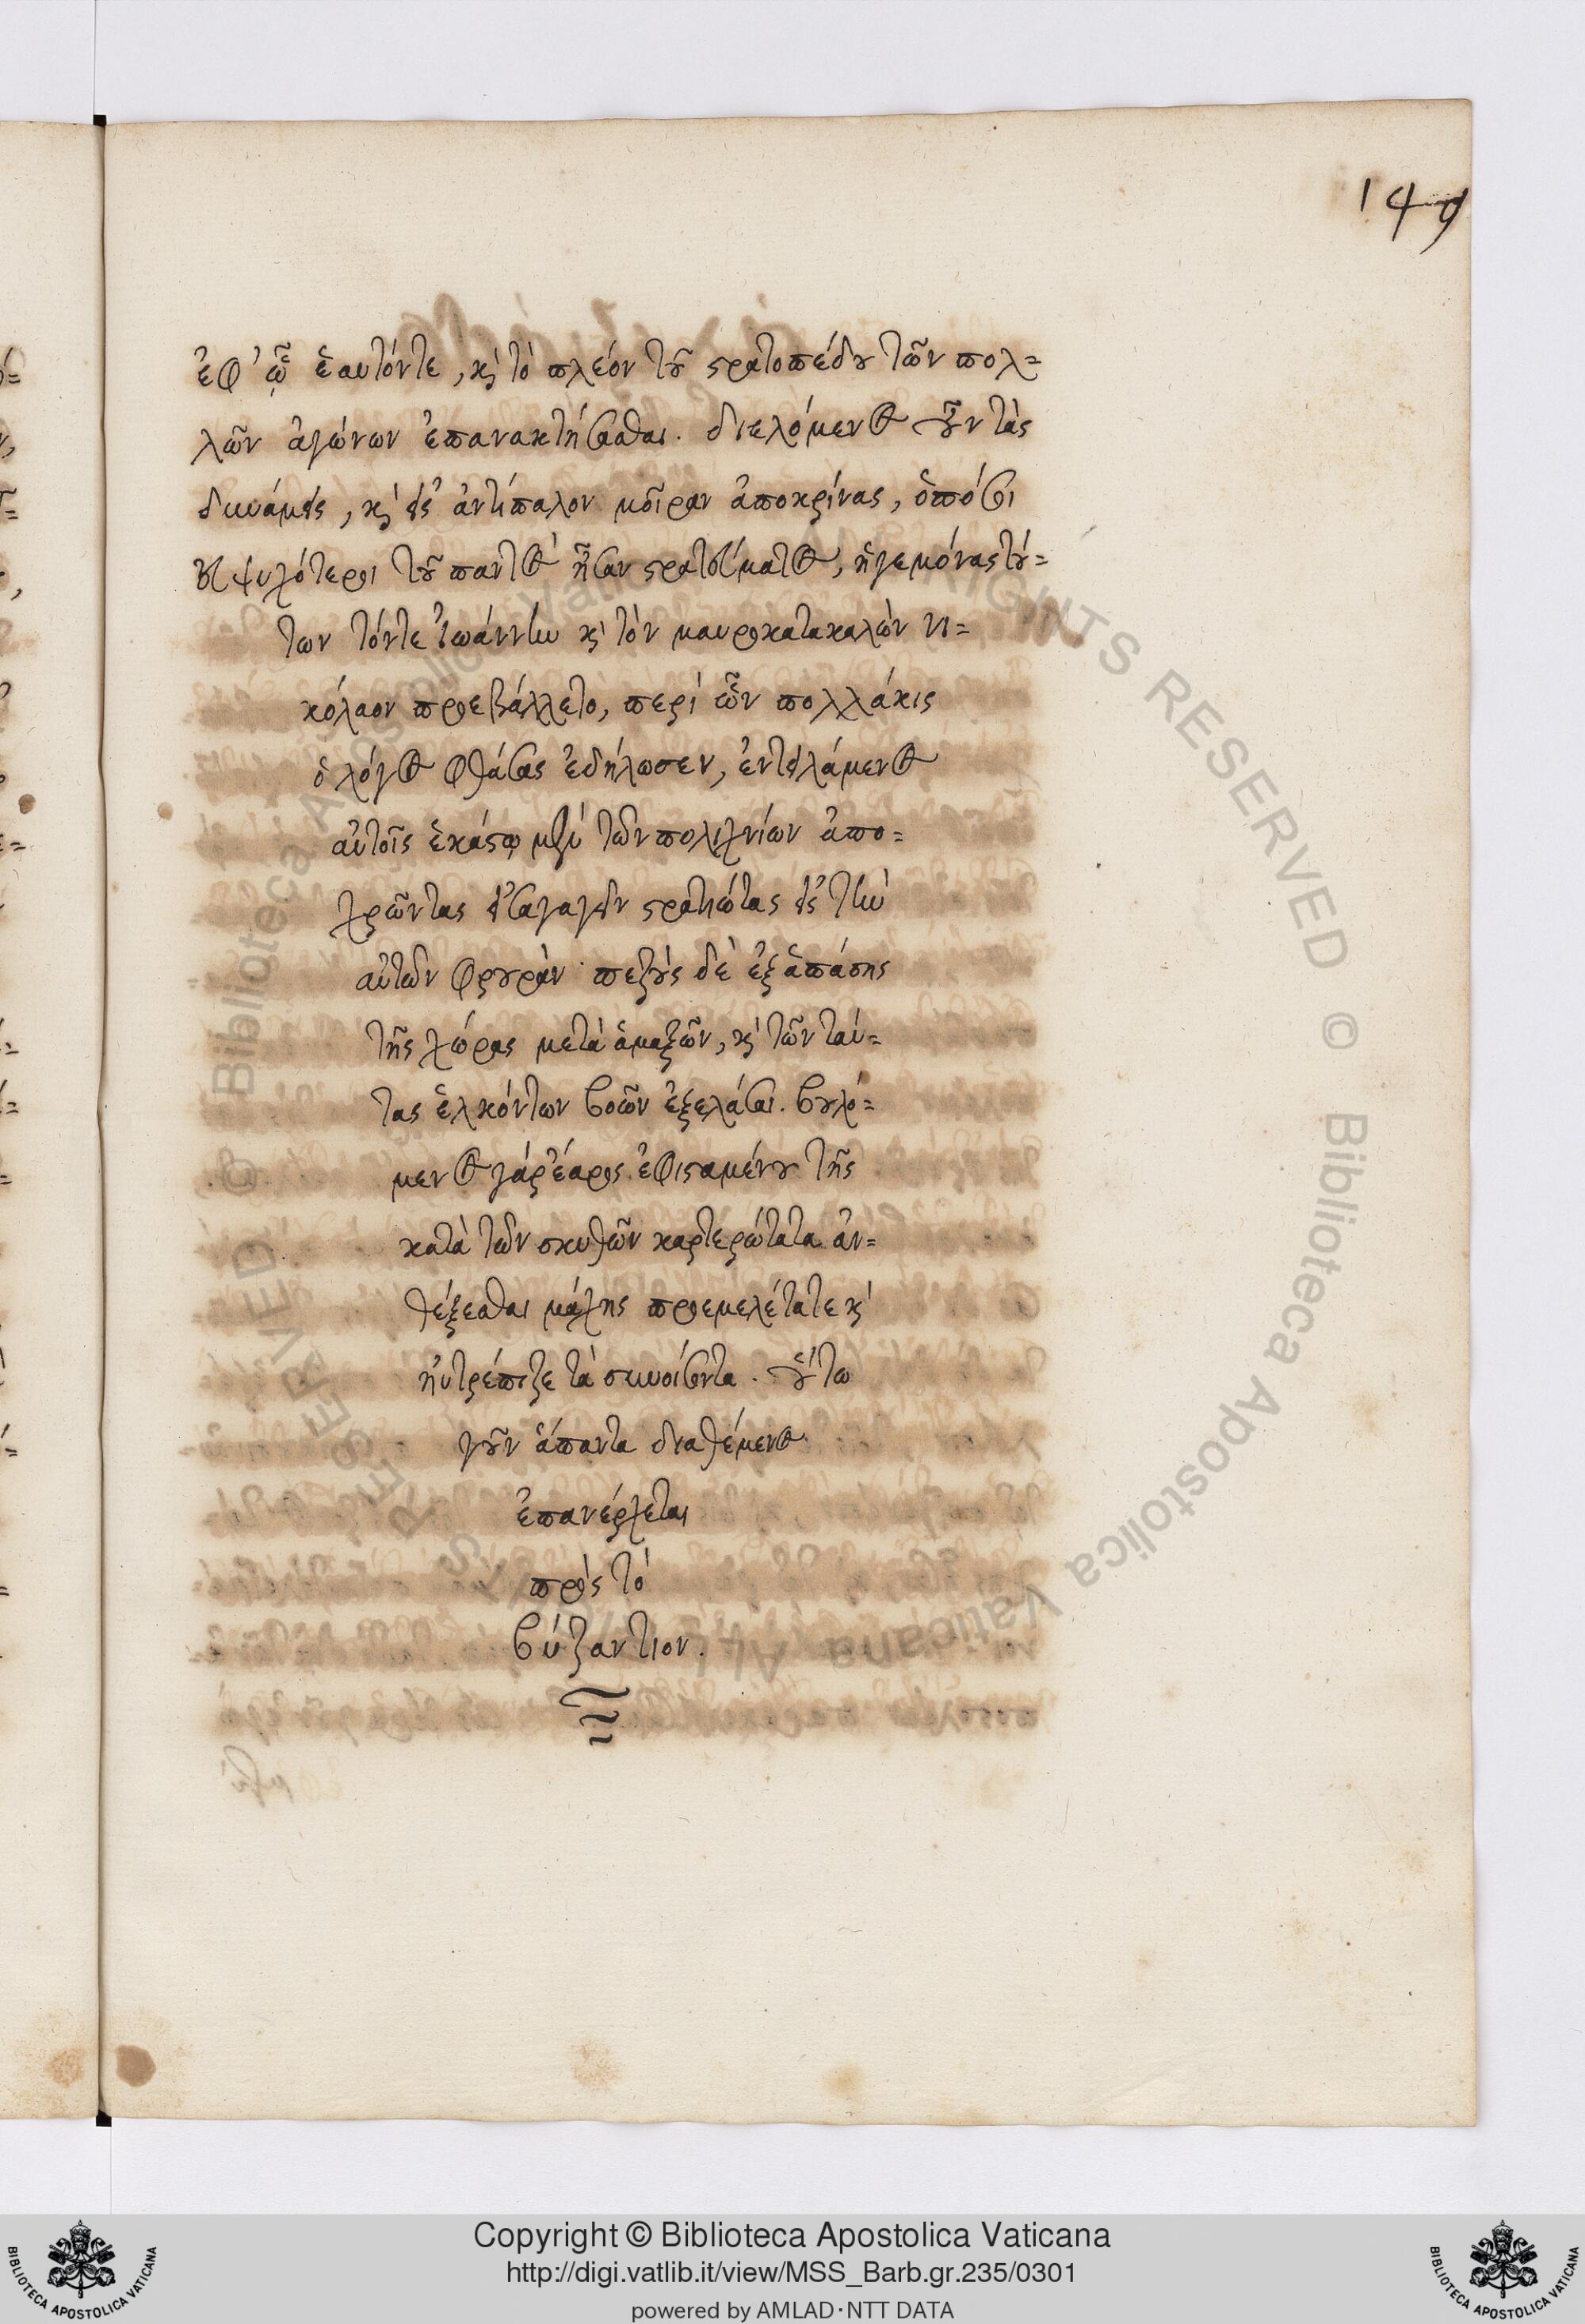 149
ἐφ' ᾧ ἑαυτόντε, κὶ τὸ πλέον τοῦ στρατοπέδου τῶν πολ=
λῶν ἀγώνων ἐπανακτήσασθαι. διελόμενος οὖν τὰς
δυνάμεις, κὶ εἰς ἀντίπαλον μοῖραν ἀποκρίνας, ὁπόσοι
εὐψυχότεροι τοῦ παντὸς ἦσαν στρατεύματος, ἡγεμόνας τού=
των τόντε Ἰωάννην κὶ τὸν μαυροκατακαλὼν νι=
κόλαον προεβάλλετο, περὶ ὧν πολλάκις
ὁ λόγος φθάσας ἐδήλωσεν, ἐντειλάμενος
αὐτοῖς ἑκάστῳ μὲν τῶν πολιχνίων ἀπο=
χρῶντας εἰσαγαγεῖν στρατιώτας εἰς τὴν
αὐτῶν φρουρὰν· πεζοὺς δὲ ἐξ ἁπάσης
τῆς χώρας μετὰ ἁμαξῶν, κὶ τῶν ταύ=
τας ἑλκόντων βοῶν ἐξελάσαι. βουλό=
μενος γάρ ἔαρος ἐφισταμένου τῆς
κατὰ τῶν σκυθῶν καρτερώτατα ἀν=
θέξεσθαι μάχης προεμελέτατε κὶ
ηὐτρέπιζε τὰ συνοίσοντα. οὕτω
γοῦν ἅπαντα διαθέμενος
ἐπανέρχεται
πρὸς τὸ
βύζαντιον.
Copyright © Biblioteca Apostolica Vaticana
http://digi.vatlib.it/view/MSS_Barb.gr.235/0301
powered by AMLAD·NTT DATA
BIBLIOTECA APOSTOLICA VATICANA
BIBLIOTECA APOSTOLICA VATICANA